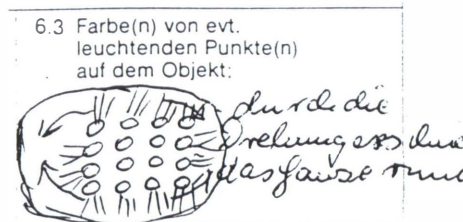 6.3 Farbe(n) von evt.
leuchtenden Punkte(n)
auf dem Objekt:
durch die
Drehung
das Ganze